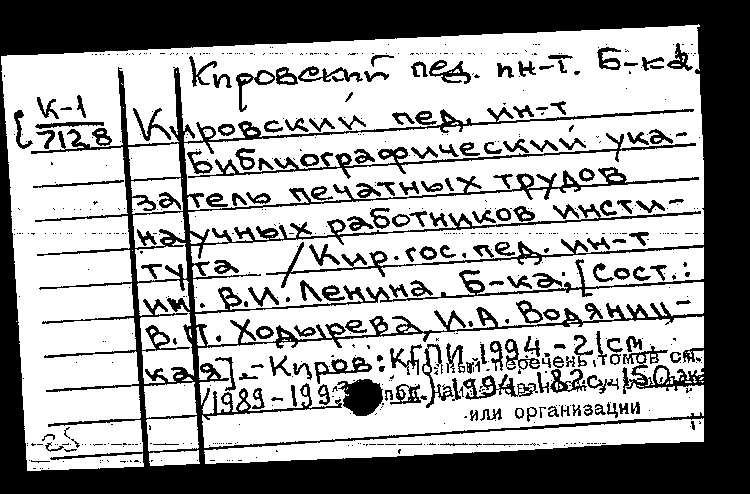 Кировский пед. ин-т. Б-ка.
К-1
7128
Кировский пед. ин-т
Библиографический ука-
затель печатных трудов
научных работников инсти-
тута / Кир. гос. пед. ин-т
им. В.И. Ленина. Б-ка; [Сост.:
В.П. Ходырева, И.А. Водяниц-
кая]. - Киров: КГПИ, 1994. - 21 см.
Полный перечень томов см.
(1989-1993 гг.). 1994. 18 с. 150 экз
под
или организации
25